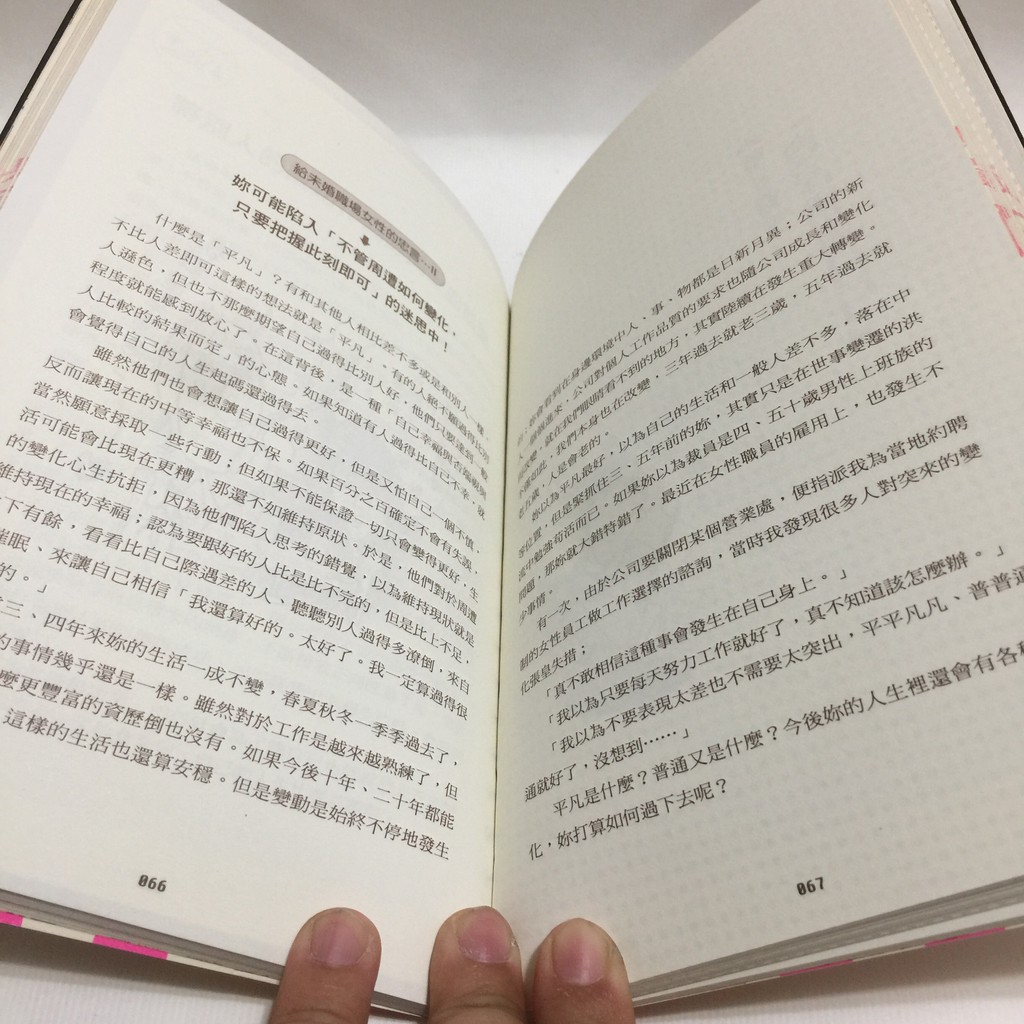 給未婚職場女性的忠言…11
妳可能陷入「不管周遭如何變化，
只要把握此刻即可」的迷思中！
什麼是「平凡」？有和其他人相比差不多或是和別人一樣、
不比人差即可這樣的想法就是「平凡」。有的人絕不願過得比別
人遜色，但也不那麼期望自己過得比別人好，他們只要想到「一般
程度就能感到放心了。在這背後，是一種「自己幸福與否端視與
人比較的結果而定」的心態。如果知道有人過得比自己不幸，就
會覺得自己的人生起碼還過得去。
雖然他們也會想讓自己過得更好，但是又怕自己一個不慎，
反而讓現在的中等幸福也不保。如果百分之百確定不會有失誤，
當然願意採取一些行動；但如果不能保證一切只會變得更好，生
活可能會比現在更糟，那還不如維持原狀。於是，他們對於周遭
的變化心生抗拒，因為他們陷入思考的錯覺，以為維持現狀就是
維持現在的幸福；認為要跟好的人比是比不完的，但是比上不足，
下有餘，看看比自己際遇差的人、聽聽別人過得多潦倒，來自
催眠、來讓自己相信「我還算好的。太好了。我一定算過得很
的。」
三、四年來妳的生活一成不變，春夏秋冬一季季過去了，
的事情幾乎還是一樣。雖然對於工作是越來越熟練了，但
麼更豐富的資歷倒也沒有。如果今後十年、二十年都能
這樣的生活也還算安穩。但是變動是始終不停地發生
066
會看到在身邊環境中人、事、物都是日新月異；公司的新
人一個個進來，公司對個人工作品質的要求也隨公司成長和變化
而改變。就在我們眼睛看不到的地方，其實陸續在發生重大轉變。
不僅如此，我們本身也在改變，三年過去就老三歲，五年過去就
老五歲，人是會老的。
妳以為平凡最好，以為自己的生活和一般人差不多，落在中
等位置，但是緊抓住三、五年前的妳，其實只是在世事變遷的洪
流中勉強苟活而已。如果妳以為裁員是四、五十歲男性上班族的
問題，那妳就大錯特錯了。最近在女性職員的雇用上，也發生不
少事情。
有一次，由於公司要關閉某個營業處，便指派我為當地約聘
制的女性員工做工作選擇的諮詢，當時我發現很多人對突來的變
化張皇失措；
「真不敢相信這種事會發生在自己身上。」
「我以為只要每天努力工作就好了，真不知道該怎麼辦。」
「我以為不要表現太差也不需要太突出，平平凡凡、普普通
通就好了，沒想到……」
平凡是什麼？普通又是什麼？今後妳的人生裡還會有各種
化，妳打算如何過下去呢？
067